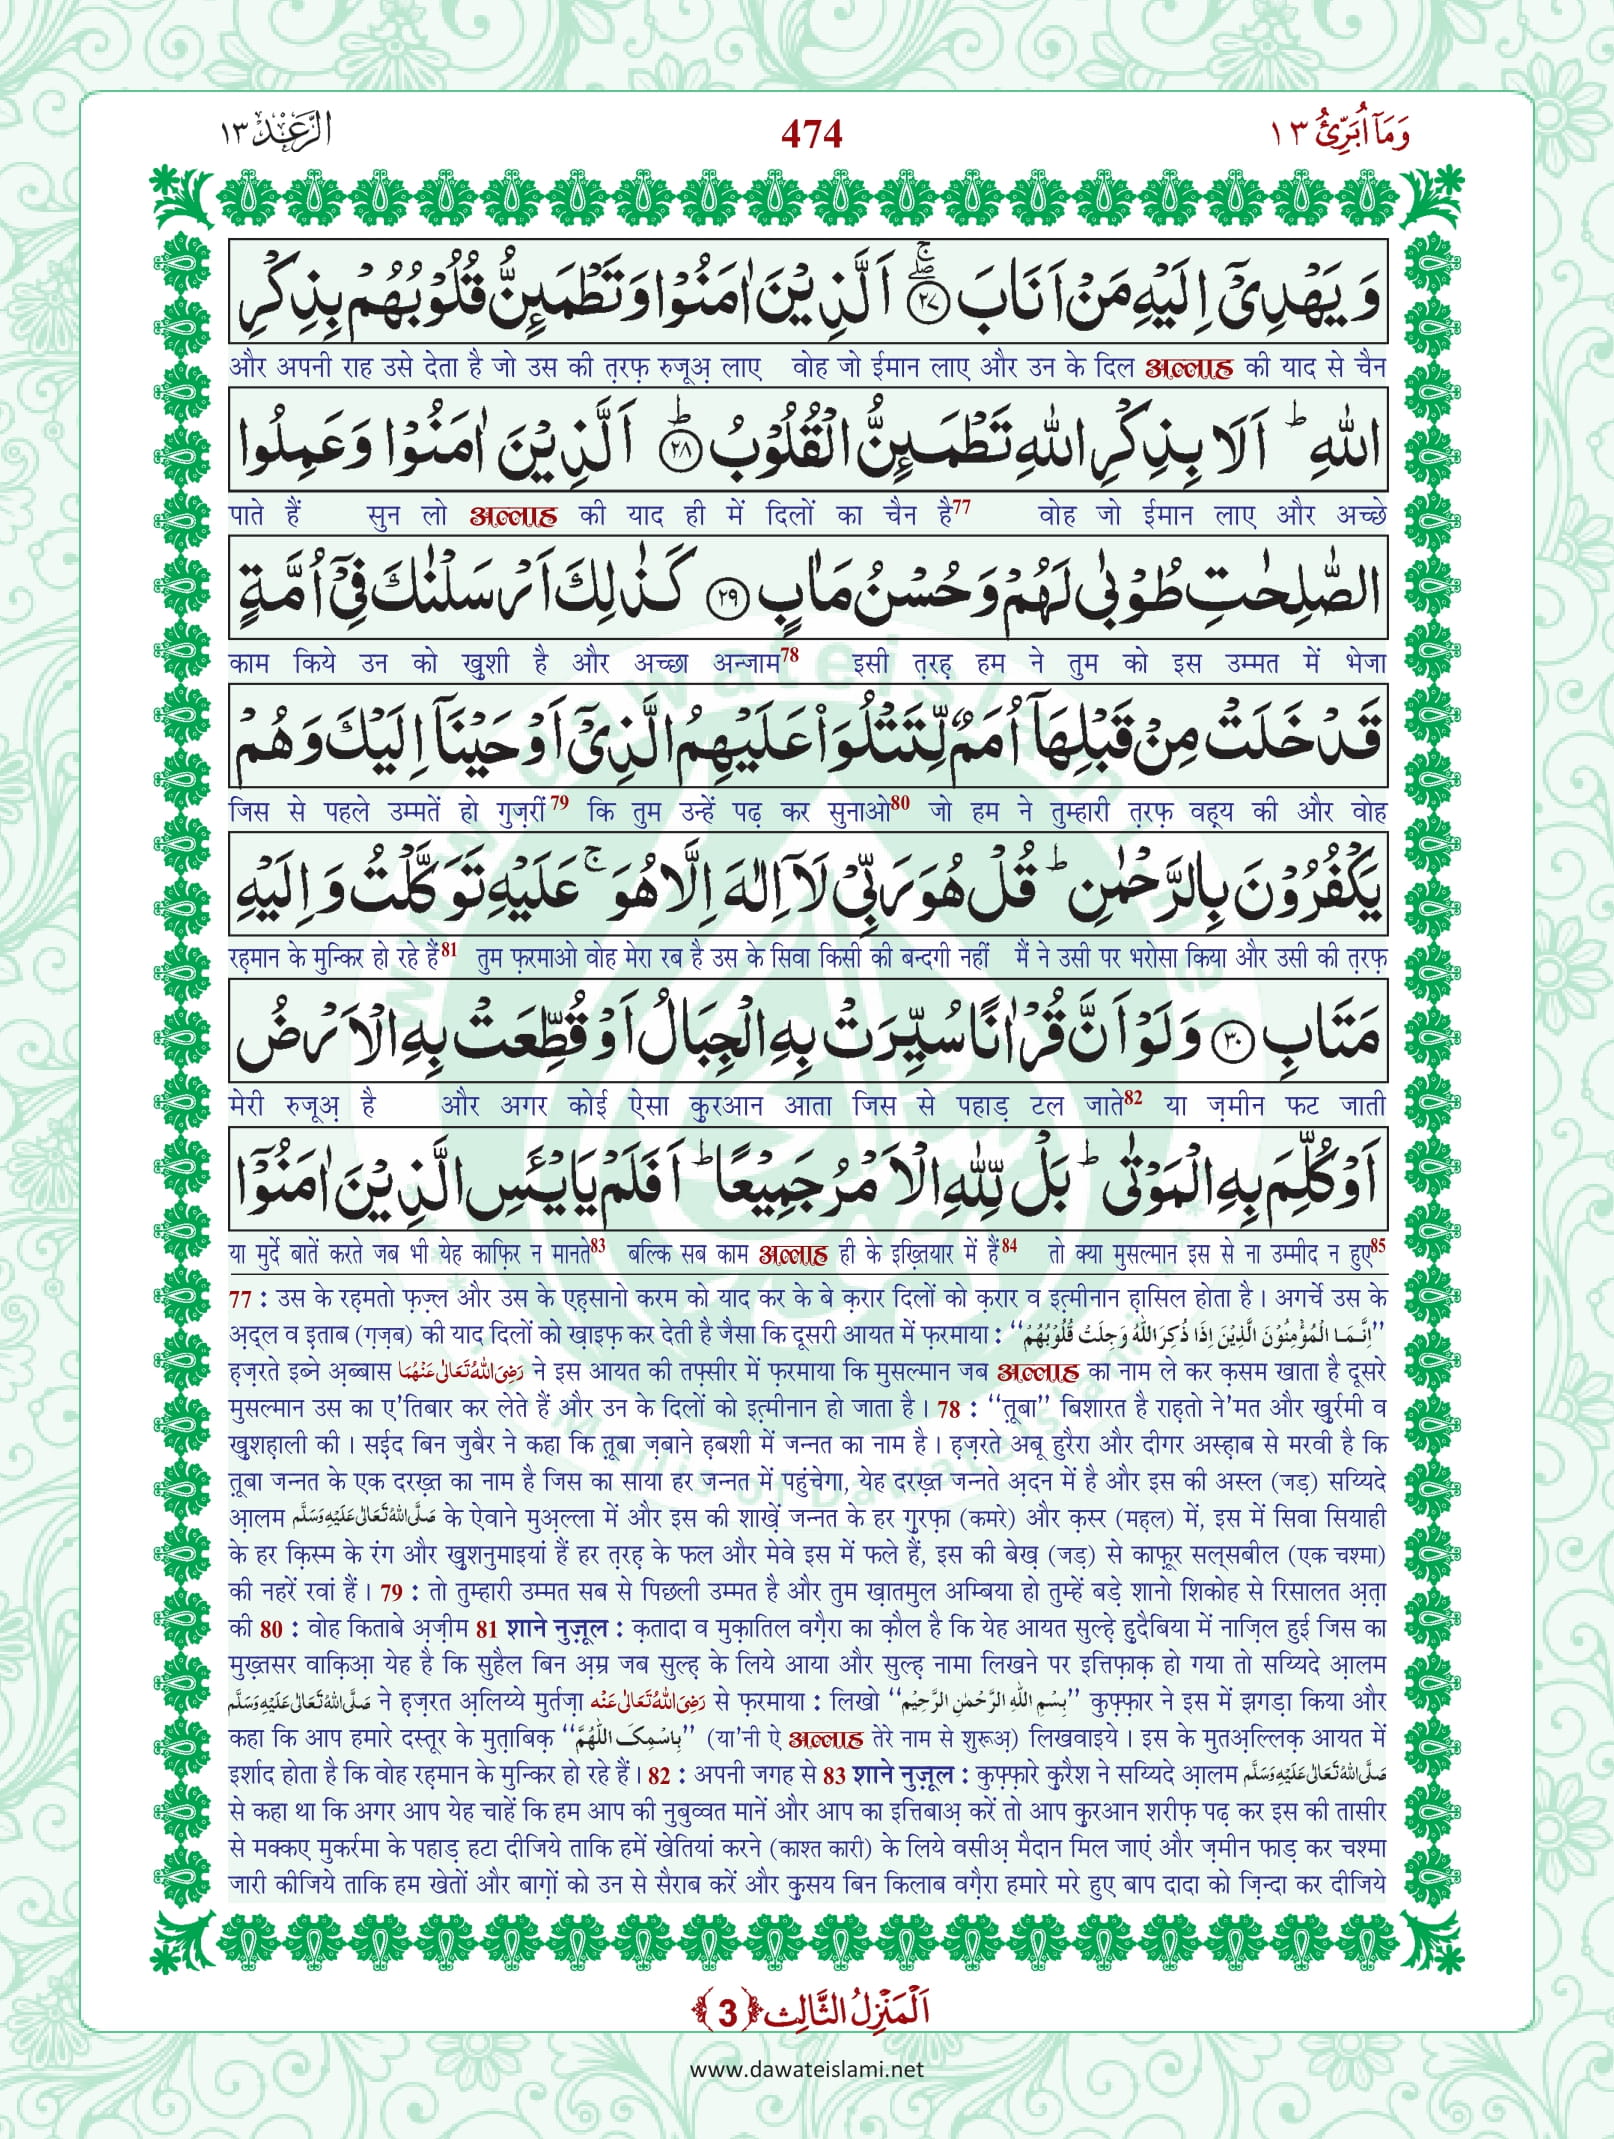 وَمَاۤ اُبَرِّئُ ١٣ 474 الرَّعْد ١٣
وَ یَهْدِیْۤ اِلَیْهِ مَنْ اَنَابَ ﴿ۖۚ۲۷﴾ اَلَّذِیْنَ اٰمَنُوْا وَ تَطْمَىٕنُّ قُلُوْبُهُمْ بِذِكْرِ
और अपनी राह उसे देता है जो उस की त़रफ़ रुजूअ़ लाए वोह जो ईमान लाए और उन के दिल अल्लाह की याद से चैन
اللّٰهِؕ اَلَا بِذِكْرِ اللّٰهِ تَطْمَىٕنُّ الْقُلُوْبُؕ ﴿۲۸﴾ اَلَّذِیْنَ اٰمَنُوْا وَ عَمِلُوا
पाते हैं सुन लो अल्लाह की याद ही में दिलों का चैन है77 वोह जो ईमान लाए और अच्छे
الصّٰلِحٰتِ طُوْبٰى لَهُمْ وَ حُسْنُ مَاٰبٍ ﴿۲۹﴾ كَذٰلِكَ اَرْسَلْنٰكَ فِیْۤ اُمَّةٍ
काम किये उन को ख़ुशी है और अच्छा अन्जाम78 इसी त़रह़ हम ने तुम को इस उम्मत में भेजा
قَدْ خَلَتْ مِنْ قَبْلِهَاۤ اُمَمٌ لِّتَتْلُوَاۡ عَلَیْهِمُ الَّذِیْۤ اَوْحَیْنَاۤ اِلَیْكَ وَ هُمْ
जिस से पहले उम्मतें हो गुज़रीं79 कि तुम उन्हें पढ़ कर सुनाओ80 जो हम ने तुम्हारी त़रफ़ वह़्य की और वोह
یَكْفُرُوْنَ بِالرَّحْمٰنِؕ قُلْ هُوَ رَبِّیْ لَاۤ اِلٰهَ اِلَّا هُوَۚ عَلَیْهِ تَوَكَّلْتُ وَ اِلَیْهِ
रह़मान के मुन्किर हो रहे हैं81 तुम फ़रमाओ वोह मेरा रब है उस के सिवा किसी की बन्दगी नहीं मैं ने उसी पर भरोसा किया और उसी की त़रफ़
مَتَابِ ﴿۳۰﴾ وَ لَوْ اَنَّ قُرْاٰنًا سُیِّرَتْ بِهِ الْجِبَالُ اَوْ قُطِّعَتْ بِهِ الْاَرْضُ
मेरी रुजूअ़ है और अगर कोई ऐसा क़ुरआन आता जिस से पहाड़ टल जाते82 या ज़मीन फट जाती
اَوْ كُلِّمَ بِهِ الْمَوْتٰىؕ بَلْ لِّلّٰهِ الْاَمْرُ جَمِیْعًاؕ اَفَلَمْ یَایْــٴَـسِ الَّذِیْنَ اٰمَنُوْۤا
या मुर्दे बातें करते जब भी येह काफ़िर न मानते83 बल्कि सब काम अल्लाह ही के इख़्तियार में हैं84 तो क्या मुसल्मान इस से ना उम्मीद न हुए85
77 : उस के रह़मतो फ़ज़्ल और उस के एह़सानो करम को याद कर के बे क़रार दिलों को क़रार व इत़्मीनान ह़ासिल होता है। अगर्चे उस के
अ़द्ल व इ़ताब (ग़ज़ब) की याद दिलों को ख़ाइफ़ कर देती है जैसा कि दूसरी आयत में फ़रमाया : ‘‘اِنَّمَا الْمُؤْمِنُوْنَ الَّذِیْنَ اِذَا ذُكِرَ اللّٰهُ وَجِلَتْ قُلُوْبُهُمْ’’
ह़ज़रते इब्ने अ़ब्बास رَضِیَ اللّٰهُ تَعَالٰی عَنْهُمَا ने इस आयत की तफ़्सीर में फ़रमाया कि मुसल्मान जब अल्लाह का नाम ले कर क़सम खाता है दूसरे
मुसल्मान उस का ए'तिबार कर लेते हैं और उन के दिलों को इत़्मीनान हो जाता है। 78 : ‘‘त़ूबा’’ बिशारत है राह़तो ने'मत और ख़ुर्रमी व
ख़ुशह़ाली की। सई़द बिन जुबैर ने कहा कि त़ूबा ज़बाने ह़बशी में जन्नत का नाम है। ह़ज़रते अबू हुरैरा और दीगर अस्ह़ाब से मरवी है कि
त़ूबा जन्नत के एक दरख़्त का नाम है जिस का साया हर जन्नत में पहुंचेगा, येह दरख़्त जन्नते अ़दन में है और इस की अस्ल (जड़) सय्यिदे
आ़लम صَلَّی اللّٰهُ تَعَالٰی عَلَیْهِ وَسَلَّم के ऐवाने मुअ़ल्ला में और इस की शाख़ें जन्नत के हर ग़ुरफ़ा (कमरे) और क़स्र (मह़ल) में, इस में सिवा सियाही
के हर क़िस्म के रंग और ख़ुशनुमाइयां हैं हर त़रह़ के फल और मेवे इस में फले हैं, इस की बेख़ (जड़) से काफ़ूर सल्सबील (एक चश्मा)
की नहरें रवां हैं। 79 : तो तुम्हारी उम्मत सब से पिछली उम्मत है और तुम ख़ातमुल अम्बिया हो तुम्हें बड़े शानो शिकोह से रिसालत अ़त़ा
की 80 : वोह किताबे अ़ज़ीम 81 शाने नुज़ूल : क़तादा व मुक़ातिल वग़ैरा का क़ौल है कि येह आयत सुल्ह़े ह़ुदैबिया में नाज़िल हुई जिस का
मुख़्तसर वाक़िअ़ा येह है कि सुहैल बिन अ़म्र जब सुल्ह़ के लिये आया और सुल्ह़ नामा लिखने पर इत्तिफ़ाक़ हो गया तो सय्यिदे आ़लम
صَلَّی اللّٰهُ تَعَالٰی عَلَیْهِ وَسَلَّم ने ह़ज़रत अ़लिय्ये मुर्तज़ा رَضِیَ اللّٰهُ تَعَالٰی عَنْه से फ़रमाया : लिखो ‘‘بِسْمِ اللّٰهِ الرَّحْمٰنِ الرَّحِیْمِ’’ कुफ़्फ़ार ने इस में झगड़ा किया और
कहा कि आप हमारे दस्तूर के मुत़ाबिक़ ‘‘بِاسْمِکَ اللّٰهُمَّ’’ (या'नी ऐ अल्लाह तेरे नाम से शुरूअ़) लिखवाइये। इस के मुतअ़ल्लिक़ आयत में
इर्शाद होता है कि वोह रह़मान के मुन्किर हो रहे हैं। 82 : अपनी जगह से 83 शाने नुज़ूल : कुफ़्फ़ारे क़ुरैश ने सय्यिदे आ़लम صَلَّی اللّٰهُ تَعَالٰی عَلَیْهِ وَسَلَّم
से कहा था कि अगर आप येह चाहें कि हम आप की नुबुव्वत मानें और आप का इत्तिबाअ़ करें तो आप क़ुरआन शरीफ़ पढ़ कर इस की तासीर
से मक्कए मुकर्रमा के पहाड़ हटा दीजिये ताकि हमें खेतियां करने (काश्त कारी) के लिये वसीअ़ मैदान मिल जाएं और ज़मीन फाड़ कर चश्मा
जारी कीजिये ताकि हम खेतों और बाग़ों को उन से सैराब करें और क़ुसय बिन किलाब वग़ैरा हमारे मरे हुए बाप दादा को ज़िन्दा कर दीजिये
اَلْمَنْزِلُ الثَّالِث ﴿3﴾
www.dawateislami.net